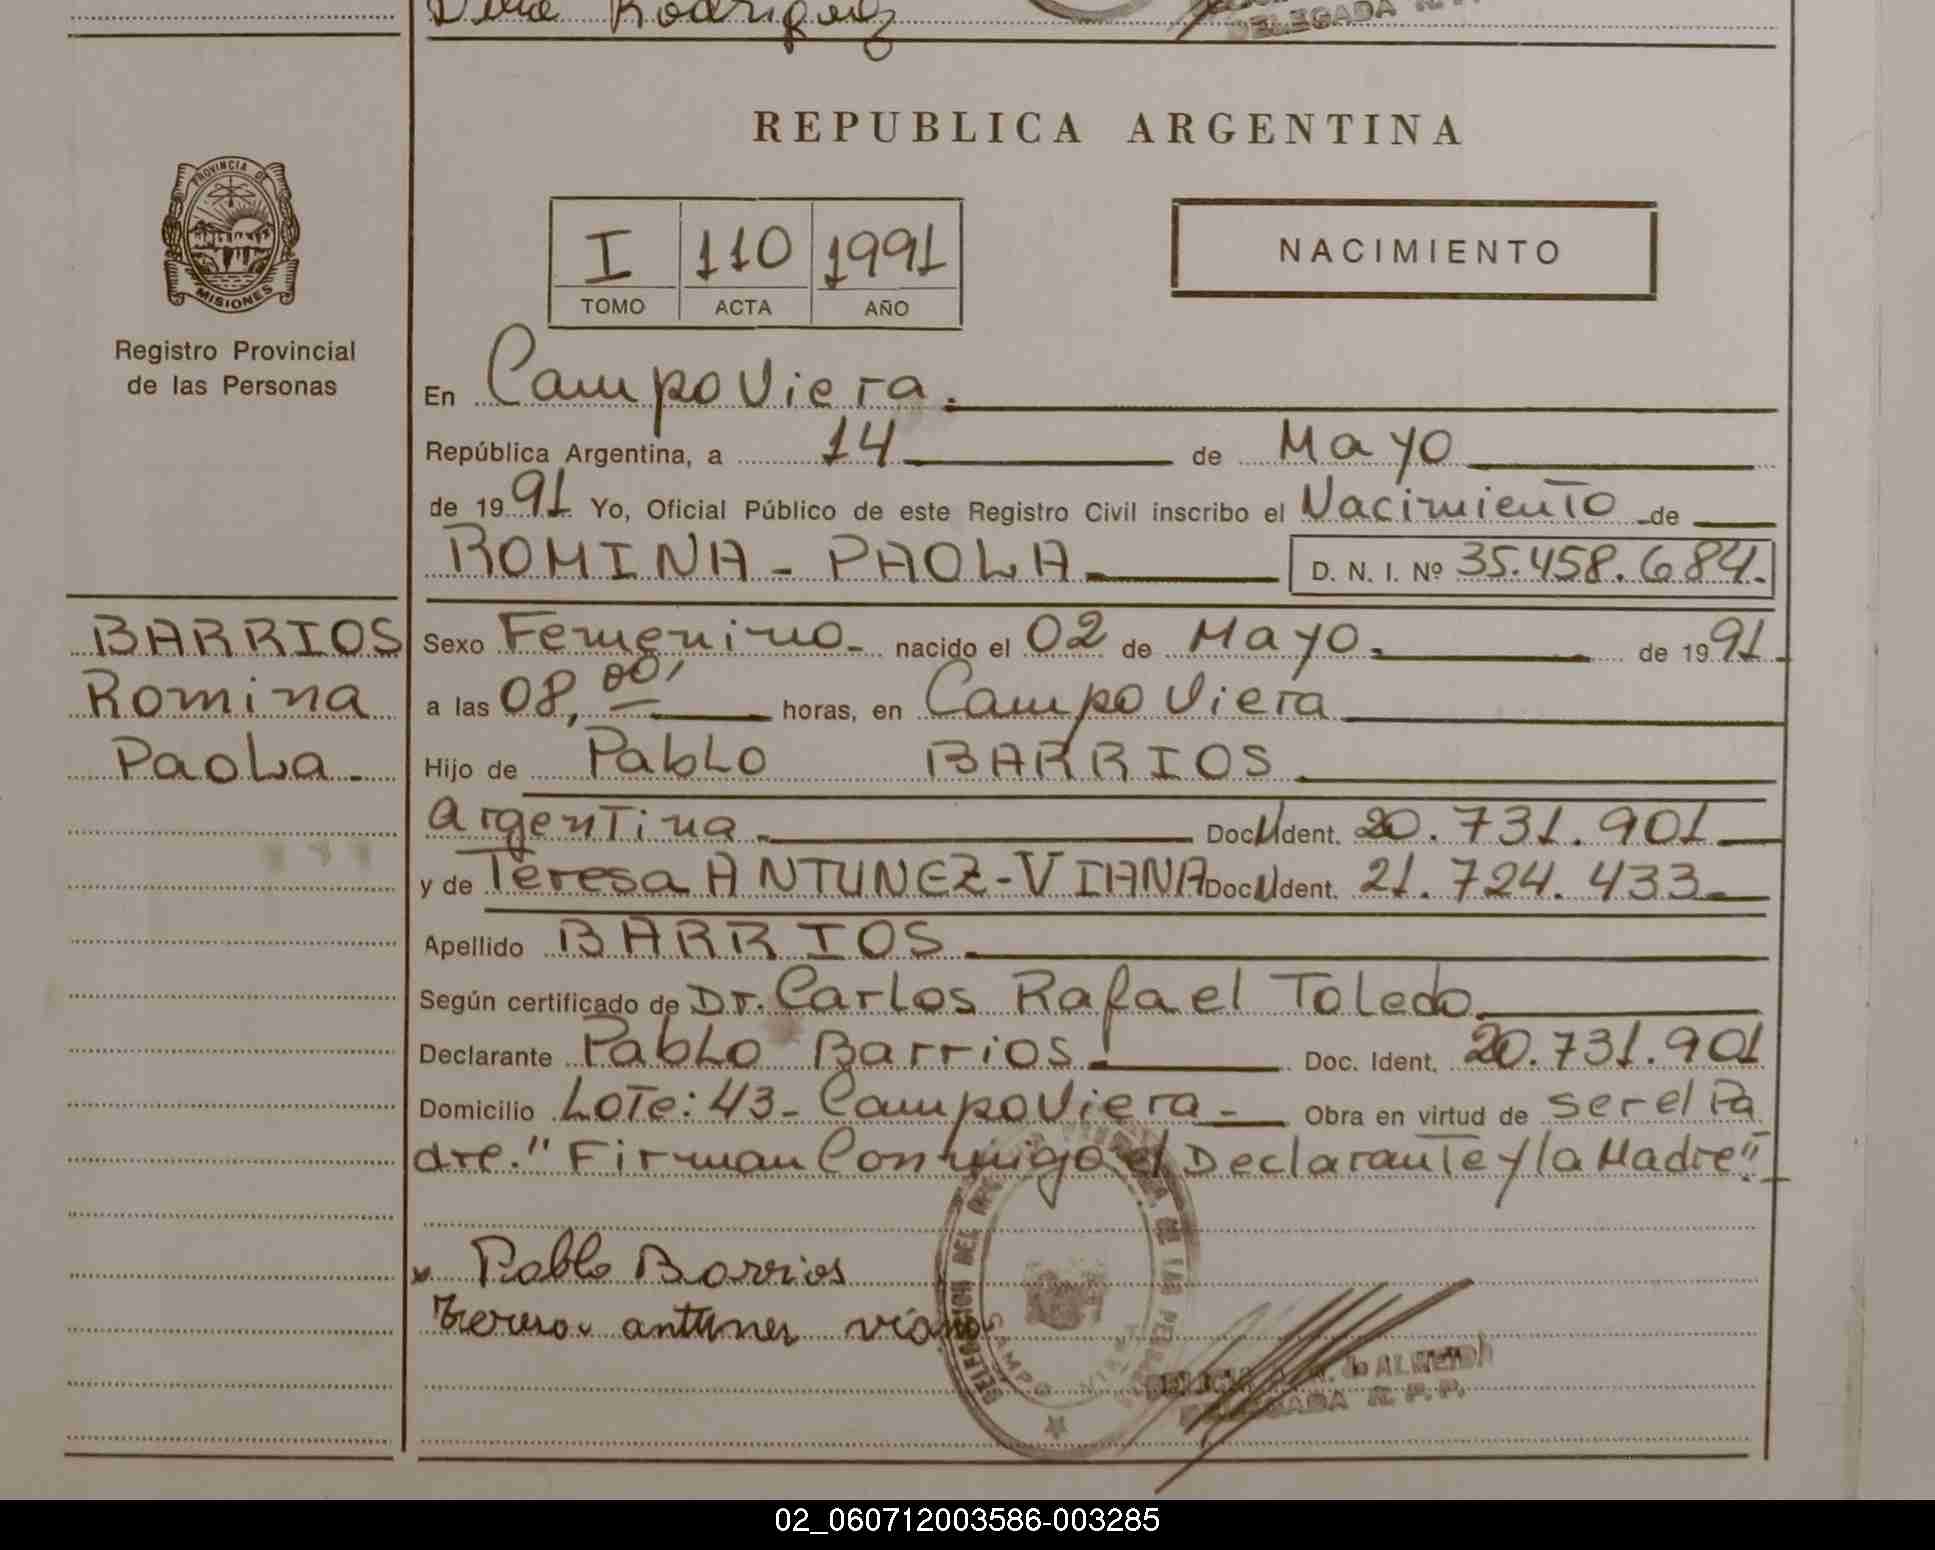 Rodriguez
DELEGADA R.P.
REPUBLICA ARGENTINA
PROVINCIA DE
MISIONES
Registro Provincial
de las Personas
I 110 1991
TOMO ACTA AÑO
NACIMIENTO
En Campo Viera.
República Argentina, a 14 de Mayo
de 1991 Yo, Oficial Público de este Registro Civil inscribo el Nacimiento de
ROMINA - PAOLA D. N. I. Nº 35.458.684.
BARRIOS
Romina
Paola.
Sexo Femenino. nacido el 02 de Mayo. de 1991
a las 08,00' horas, en Campo Viera
Hijo de Pablo BARRIOS
Argentina. Doc. U Ident. 20.731.901
y de Teresa ANTUNEZ-VIANA Doc. U Ident. 21.724.433
Apellido BARRIOS
Según certificado de Dr. Carlos Rafael Toledo
Declarante Pablo Barrios Doc. Ident. 20.731.901
Domicilio Lote: 43 - Campo Viera - Obra en virtud de ser el Pa
dre. "Firman Conmigo el Declarante y la Madre"
x Pablo Barrios
Teresa antunez viana
DELEGACION DEL REG. DE LAS PERSONAS
CAMPO VIERA
ALMEIDA
DELEGADA R. P. P.
02_060712003586-003285